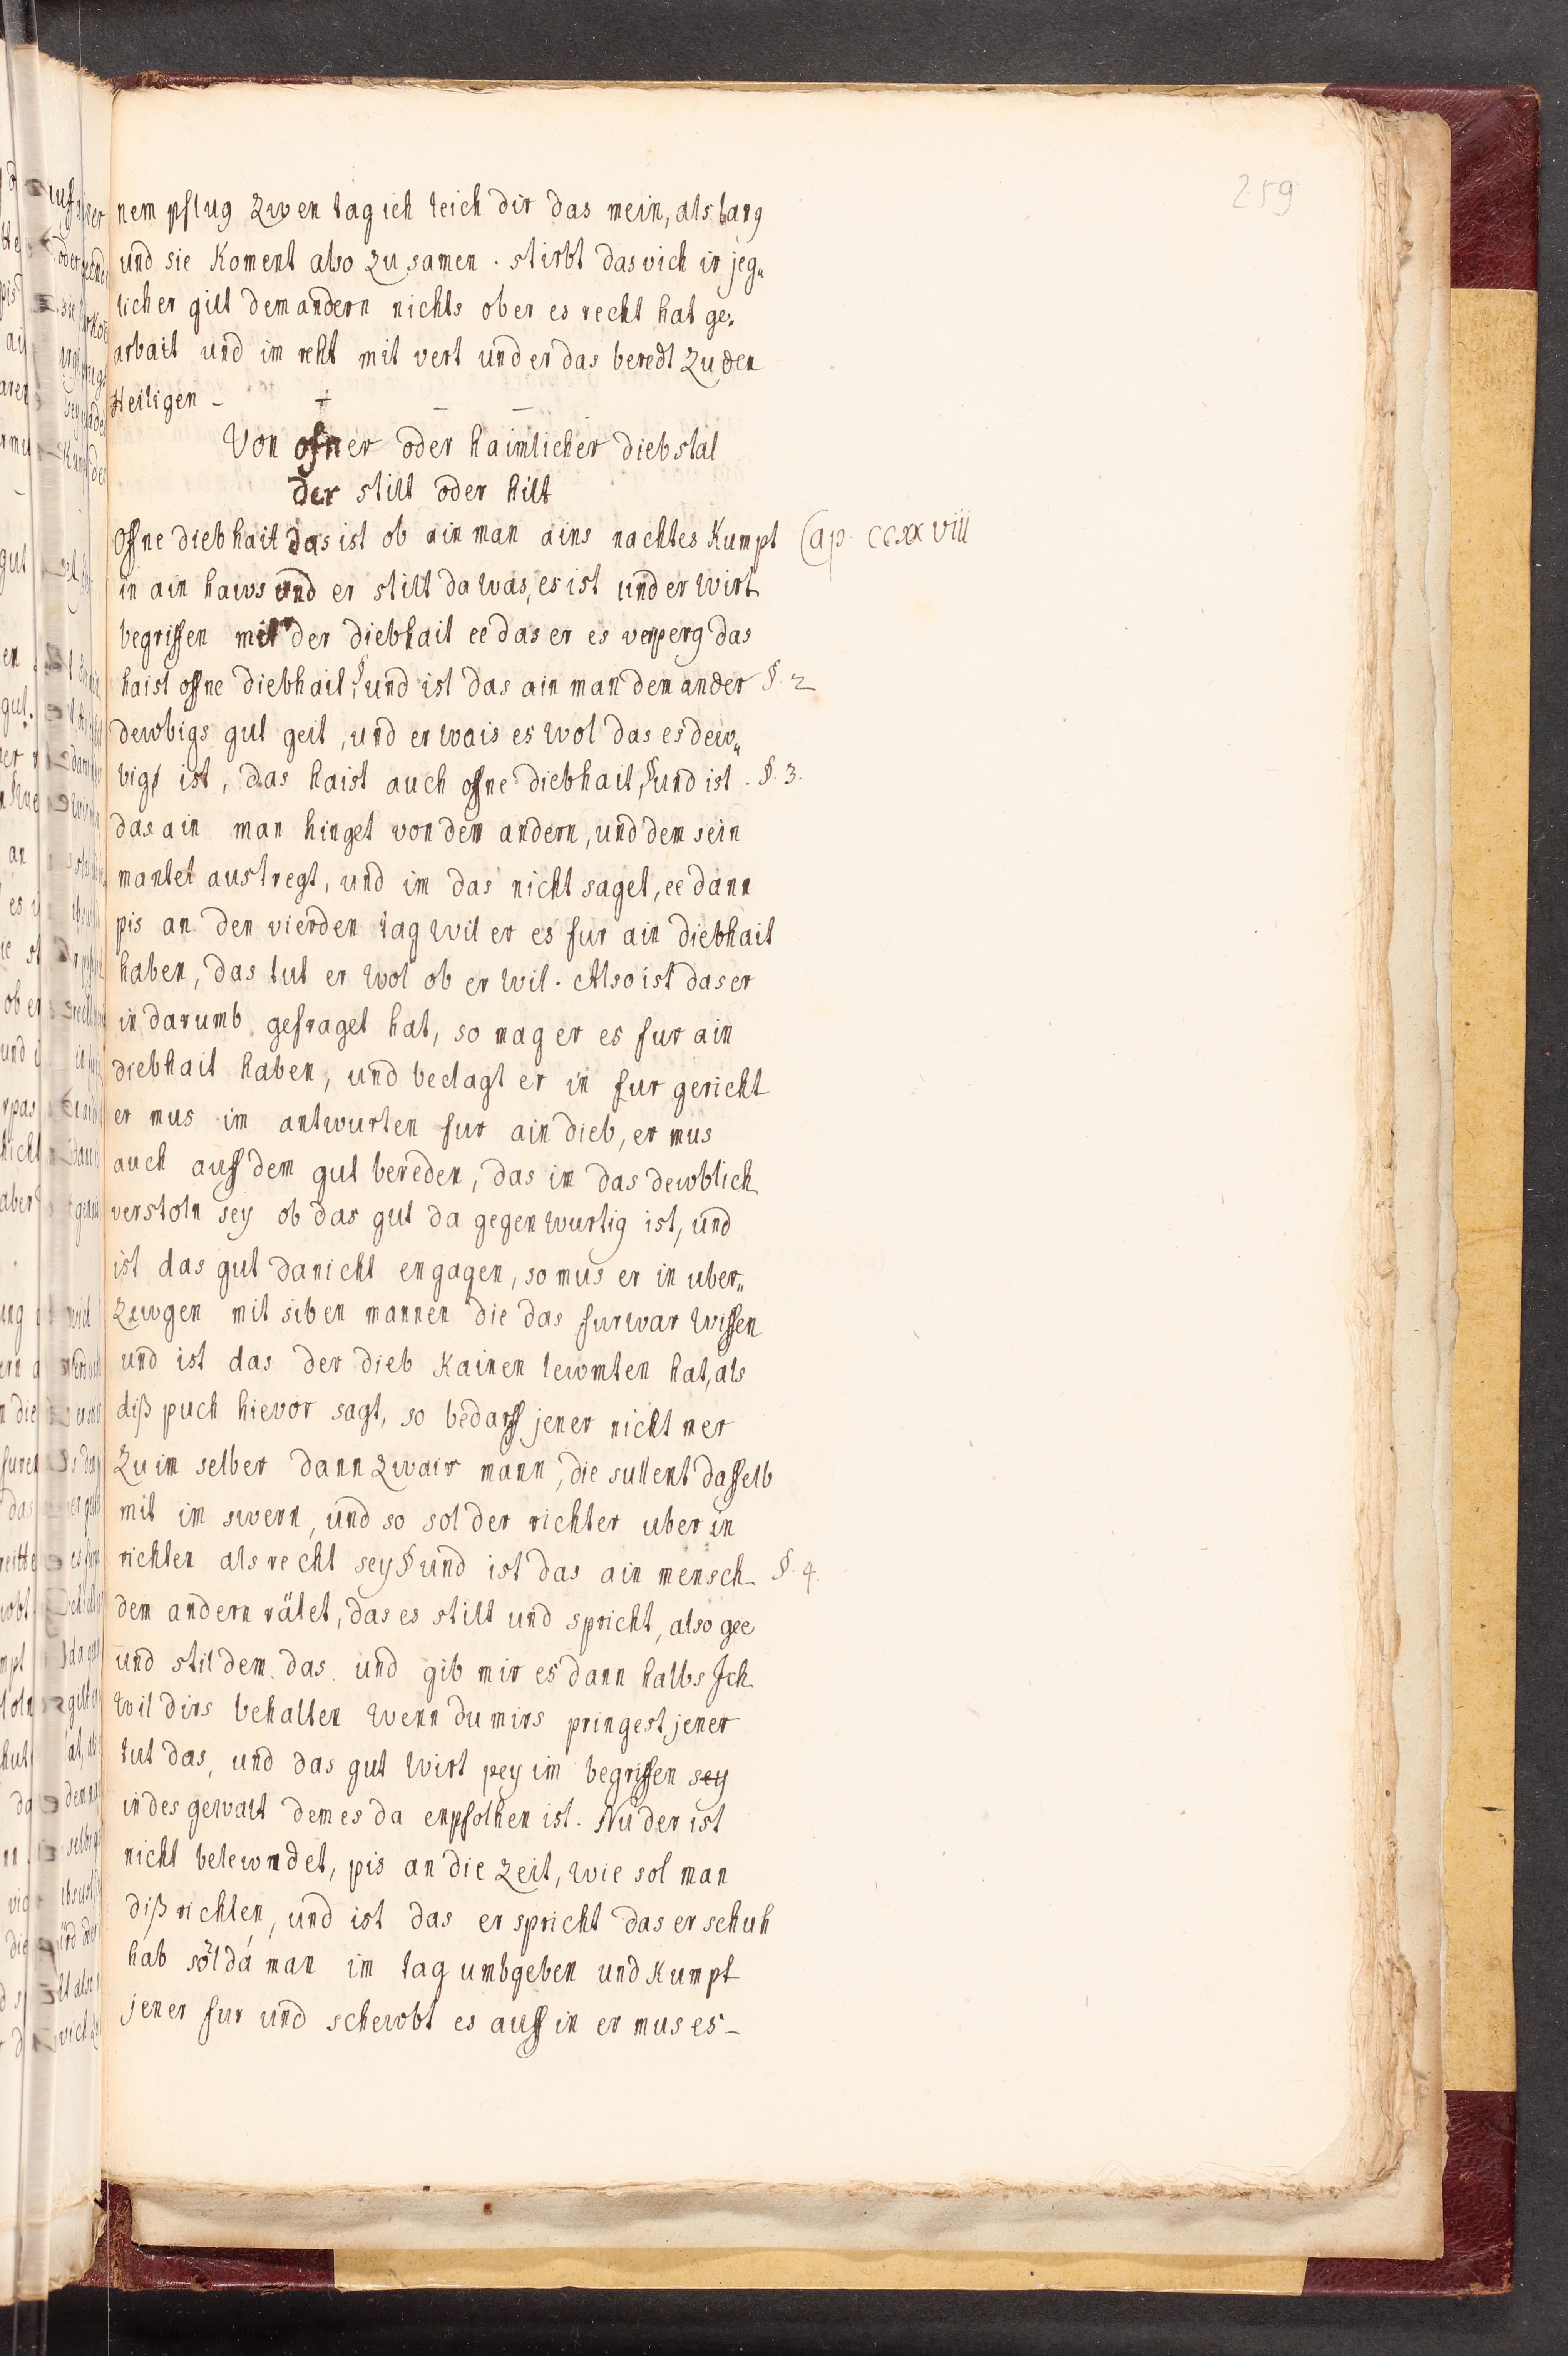 259
nem pflug zwen tag ich leich dir das mein, als lang
und sie koment also zu samen. stirbt das vich ir jeg„
licher gilt dem andern nichts ob er es recht hat ge„
arbait und im reht mit vert und er das beredt zu den
Heiligen – + – –
Von ofner oder haimlicher diebstal
der stilt oder hilt
offne diebhait das ist ob ain man ains nachtes kumpt Cap. CCXXVIII
in ain haws und er stilt da was, es ist und er wirt
begriffen mit der diebhait ee das er es verperg das
haist offne diebhait, § und ist das ain man dem ander §. 2
dewbigs gut geit, und er wais es wol das es dew„
bigs ist, das haist auch offne diebhait, § und ist. §. 3.
das ain man hinget von dem andern, und dem sein
mantel austregt, und im das nicht saget, ee dann
pis an den vierden tag wil er es fur ain diebhait
haben, das tut er wol ob er wil. Also ist das er
in darumb gefraget hat, so mag er es fur ain
diebhait haben, und beclagt er in fur gericht
er mus im antwurten fur ain dieb, er mus
auch auff dem gut bereden, das im das dewblich
verstoln sey ob das gut da gegenwurtig ist, und
ist das gut da nicht engagen, so mus er in uber„
zewgen mit siben mannen die das furwar wissen
und ist das der dieb kainen lewmten hat, als
diß puch hievor sagt, so bedarff jener nicht mer
zu im selber dann zwair mann, die sullent dasselb
mit im swern, und so sol der richter uber in
richten als recht sey § und ist das ain mensch §. 4.
dem andern rätet, das es stilt und spricht, also gee
und stil dem das und gib mir es dann halbs Ich
wil dirs behalten wenn du mirs pringest jener
tut das, und das gut wirt pey im begriffen sey
in des gewalt dem es da enpfolhen ist. Nu der ist
nicht belewmdet, pis an die zeit, wie sol man
diß richten, und ist das er spricht das er schuh
hab söl da man im tag umbgeben und kumpt
jener fur und schewbt es auff in er mus es –